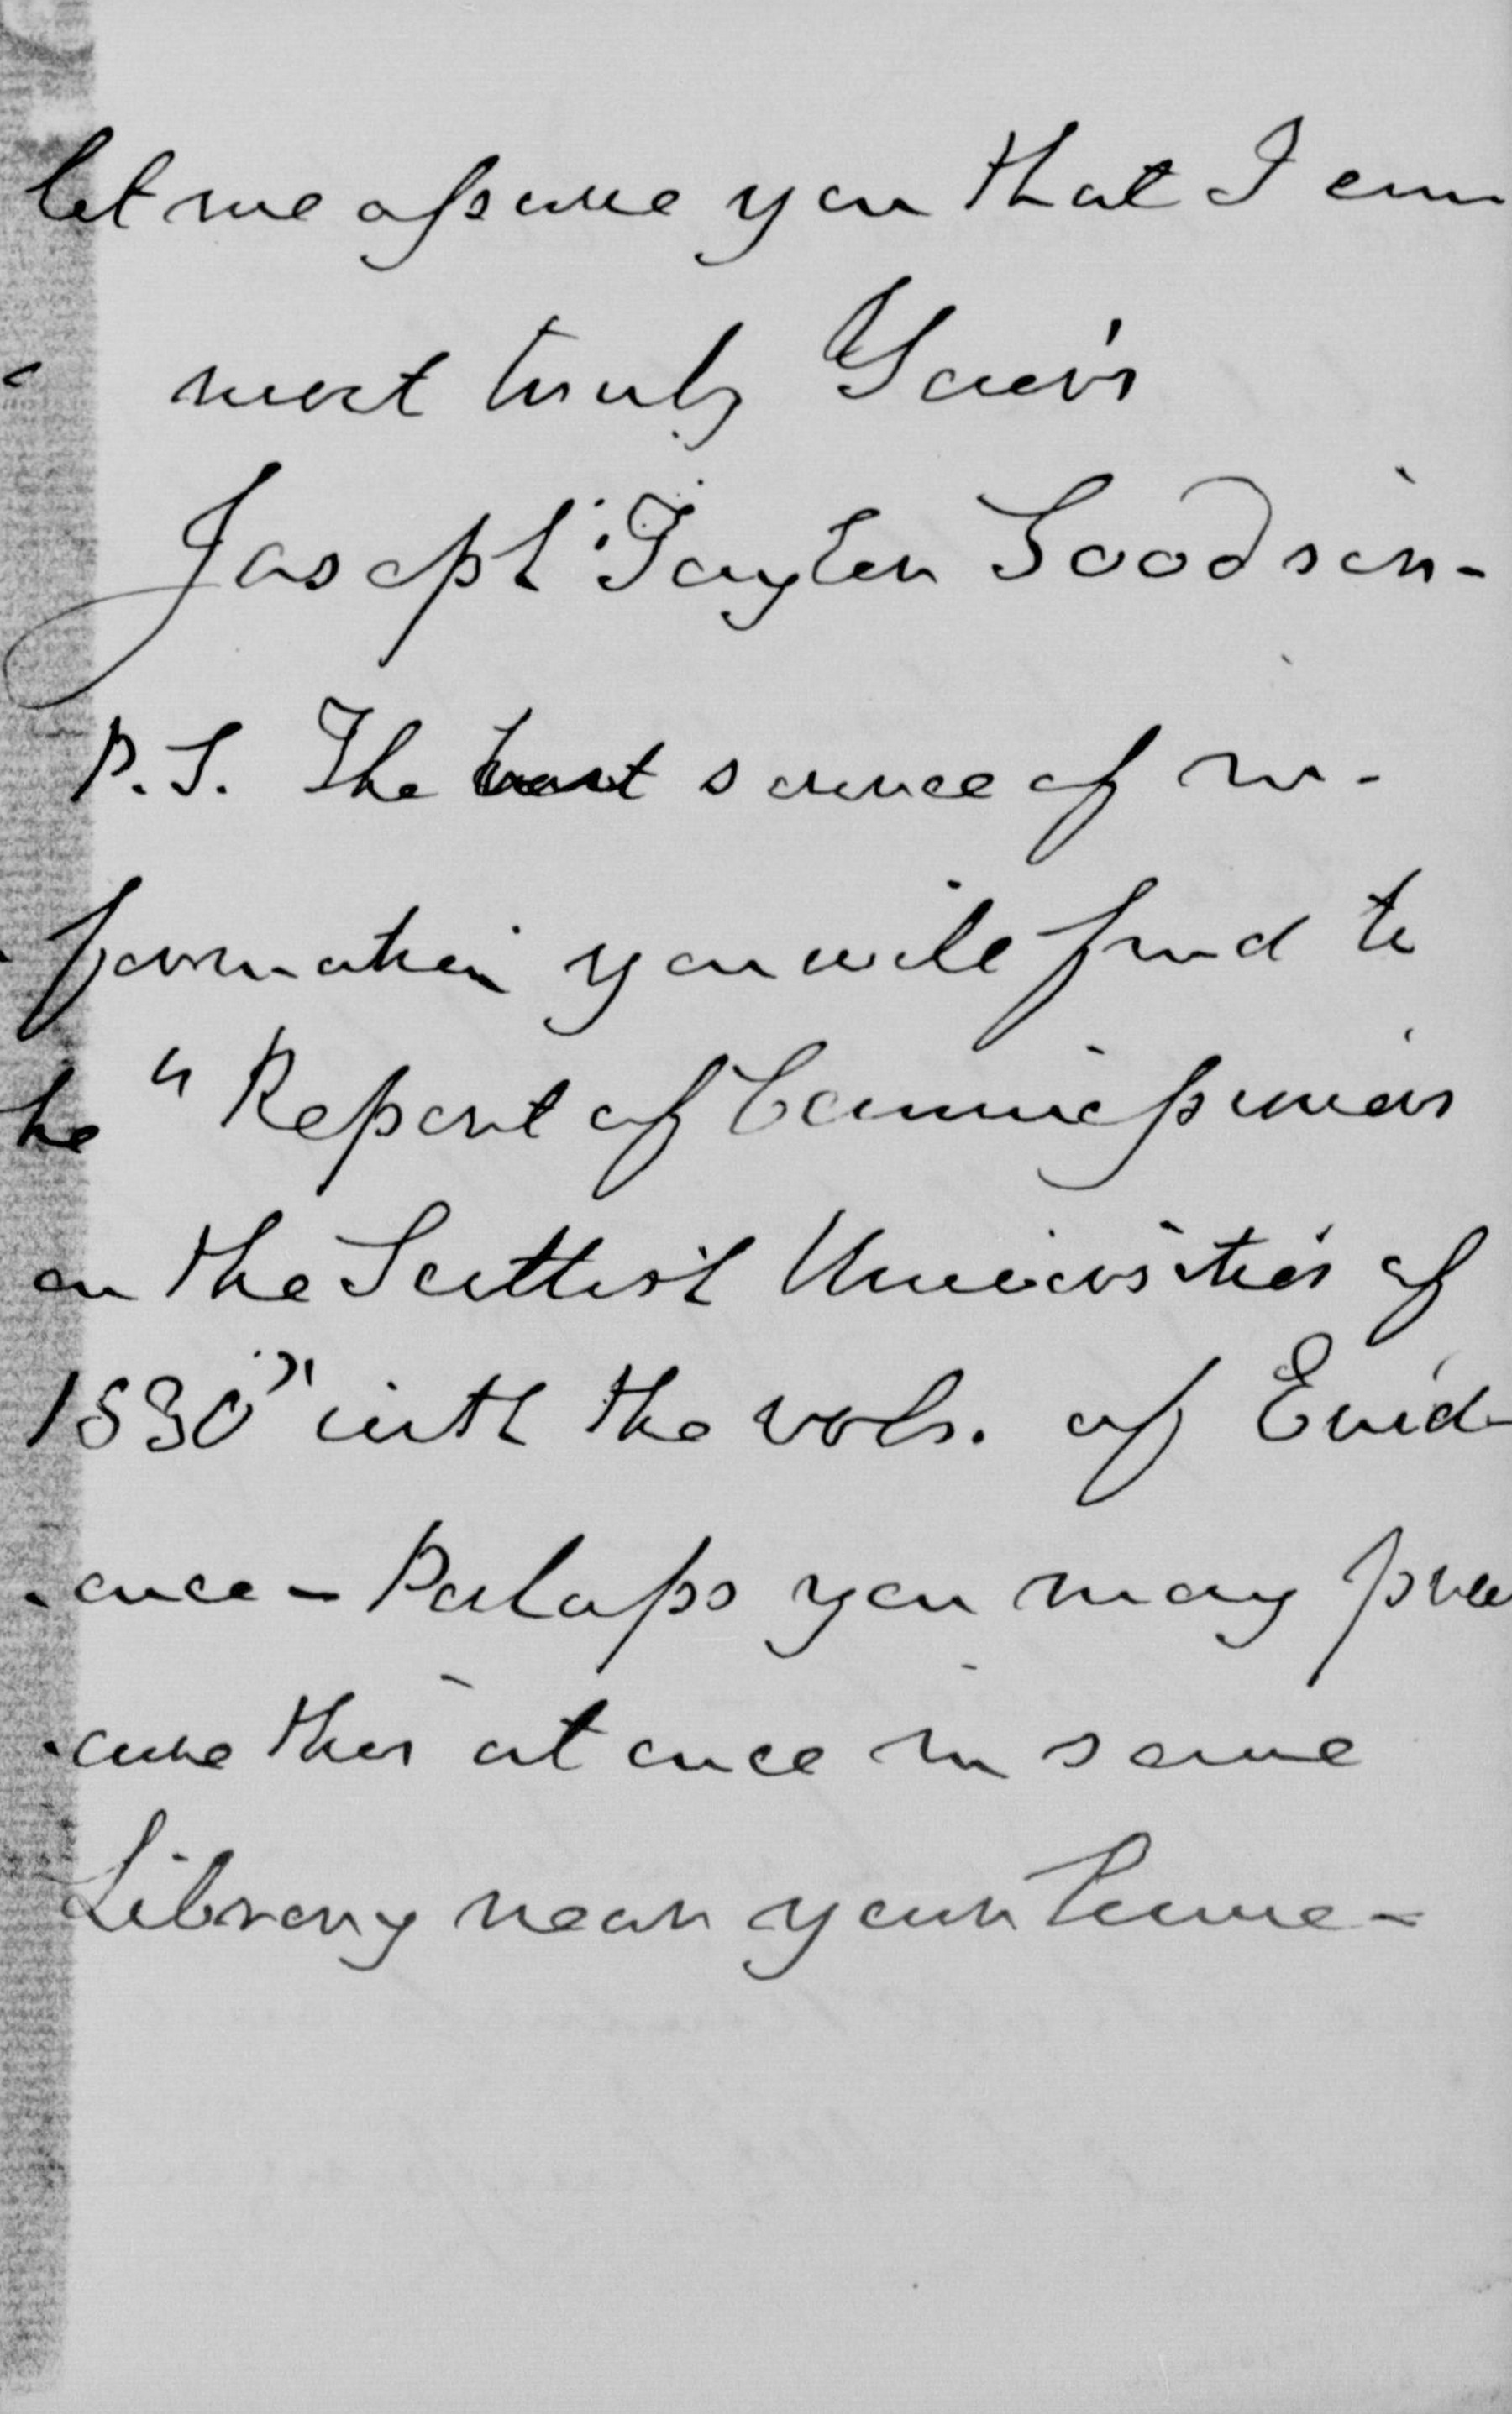 let me assure you that I am
most truly Yours
Joseph Taylor Goodsir-
P.S. The best source of in-
formation you will find to
be "Report of Commissioners
on the Scottish Universities of
1830" with the vols. of Evid-
-ence - Perhaps you may pro
-cure this at once in some
Library near your home -